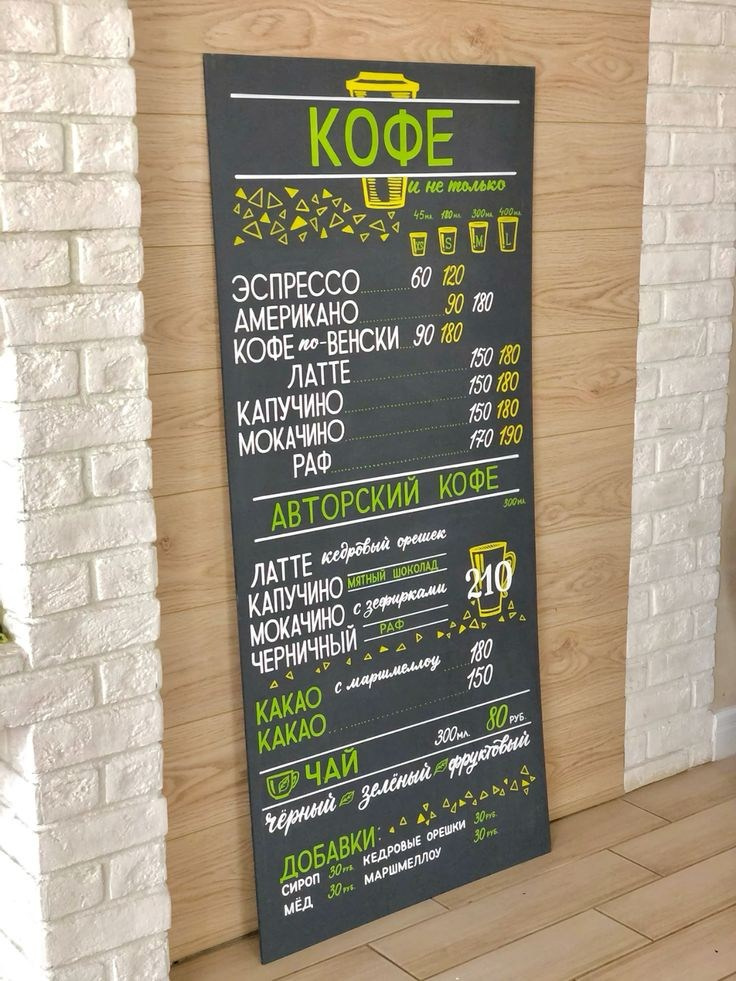 КОФЕ
и не только
45мл. 180мл. 300мл. 400мл.
XS S M L
ЭСПРЕССО 60 120
АМЕРИКАНО 90 180
КОФЕ по-ВЕНСКИ 90 180
ЛАТТЕ 150 180
КАПУЧИНО 150 180
МОКАЧИНО 150 180
РАФ 170 190
АВТОРСКИЙ КОФЕ
300мл.
ЛАТТЕ кедровый орешек
КАПУЧИНО МЯТНЫЙ ШОКОЛАД
МОКАЧИНО с зефирками
ЧЕРНИЧНЫЙ РАФ
210
КАКАО с маршмеллоу 180
КАКАО 150
ЧАЙ 300мл. 80 РУБ.
чёрный зелёный фруктовый
ДОБАВКИ:
СИРОП 30 РУБ. КЕДРОВЫЕ ОРЕШКИ 30 РУБ.
МЁД 30 РУБ. МАРШМЕЛЛОУ 30 РУБ.